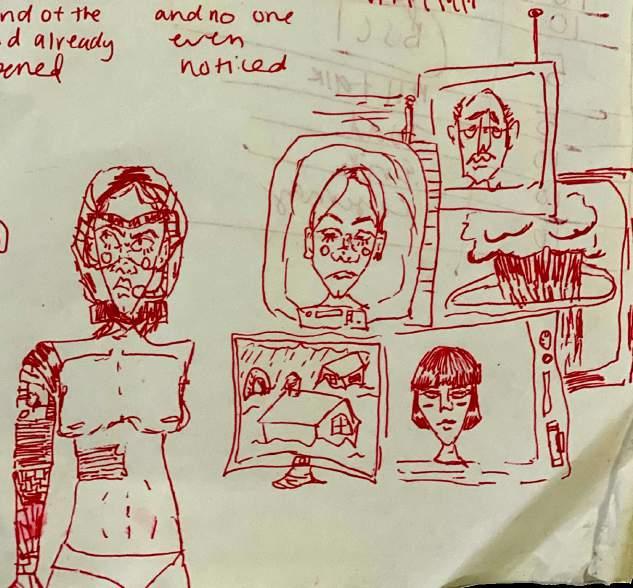 nd of the
d already
pened
and no one
even
noticed